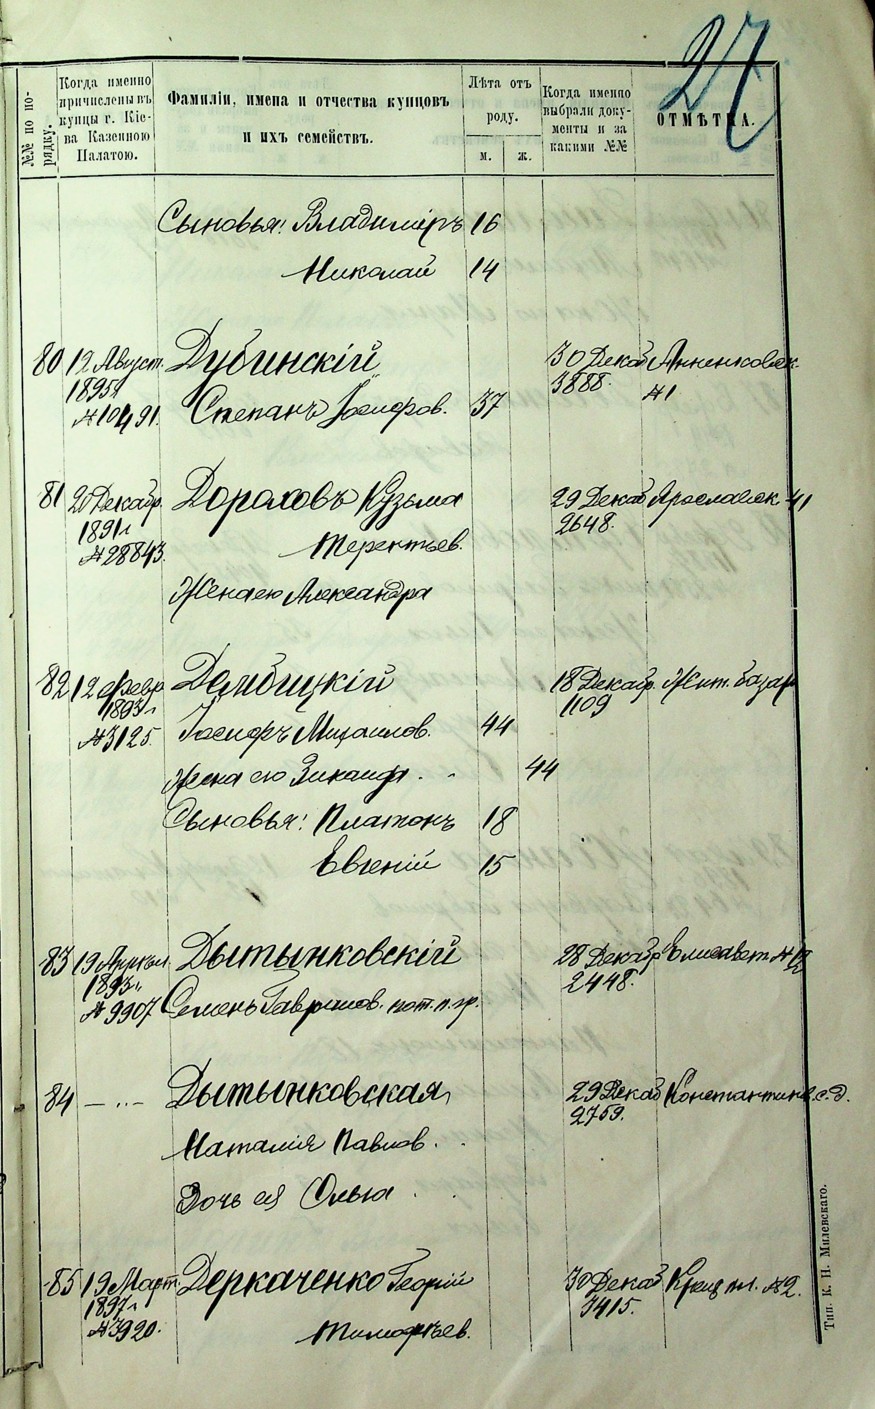 27
№№ по по-
рядку.
Когда именно
причислены въ
купцы г. Кіе-
ва Казенною
Палатою.
Фамиліи, имена и отчества купцовъ
и ихъ семействъ.
Лѣта отъ
роду.
м. ж.
Когда именно
выбрали доку-
менты и за
какими №№
ОТМѢТКА.
Сыновья: Владиміръ 16
Николай 14
80 12 Август. Дубинскій 30 Декаб Анненковск.
1895 г. 3888. №1
№10491. Степанъ Іосифов. 37
81 20 Декабр. Дороховъ Кузьма 29 Декаб Ярославск. 41
1891 г. Терентьев. 2648.
№28843.
Жена его Александра
82 12 Февр. Дембицкій 18 Декабр. Жит. базар
1893 г. 1109
№3125. Іосифъ Михаилов. 44
Жена его 44
Сыновья: Платонъ 18
Евгеній 15
83 19 Апрѣл. Дытынковскій 28 Декабр Елисавет. №
1893 г. 2448.
№9907 Семенъ Гаврилов. пот. п. гр.
84 — „ — Дытынковская 29 Декаб Константинов. с. д.
2759.
Наталія Павлов.
Дочь ея Ольга
85 19 Март. Деркаченко Георгій 30 Декаб Крещ пл. №2.
1897 г. 3415.
№3920. Тимофѣев.
Тип. К. Н. Милевскаго.